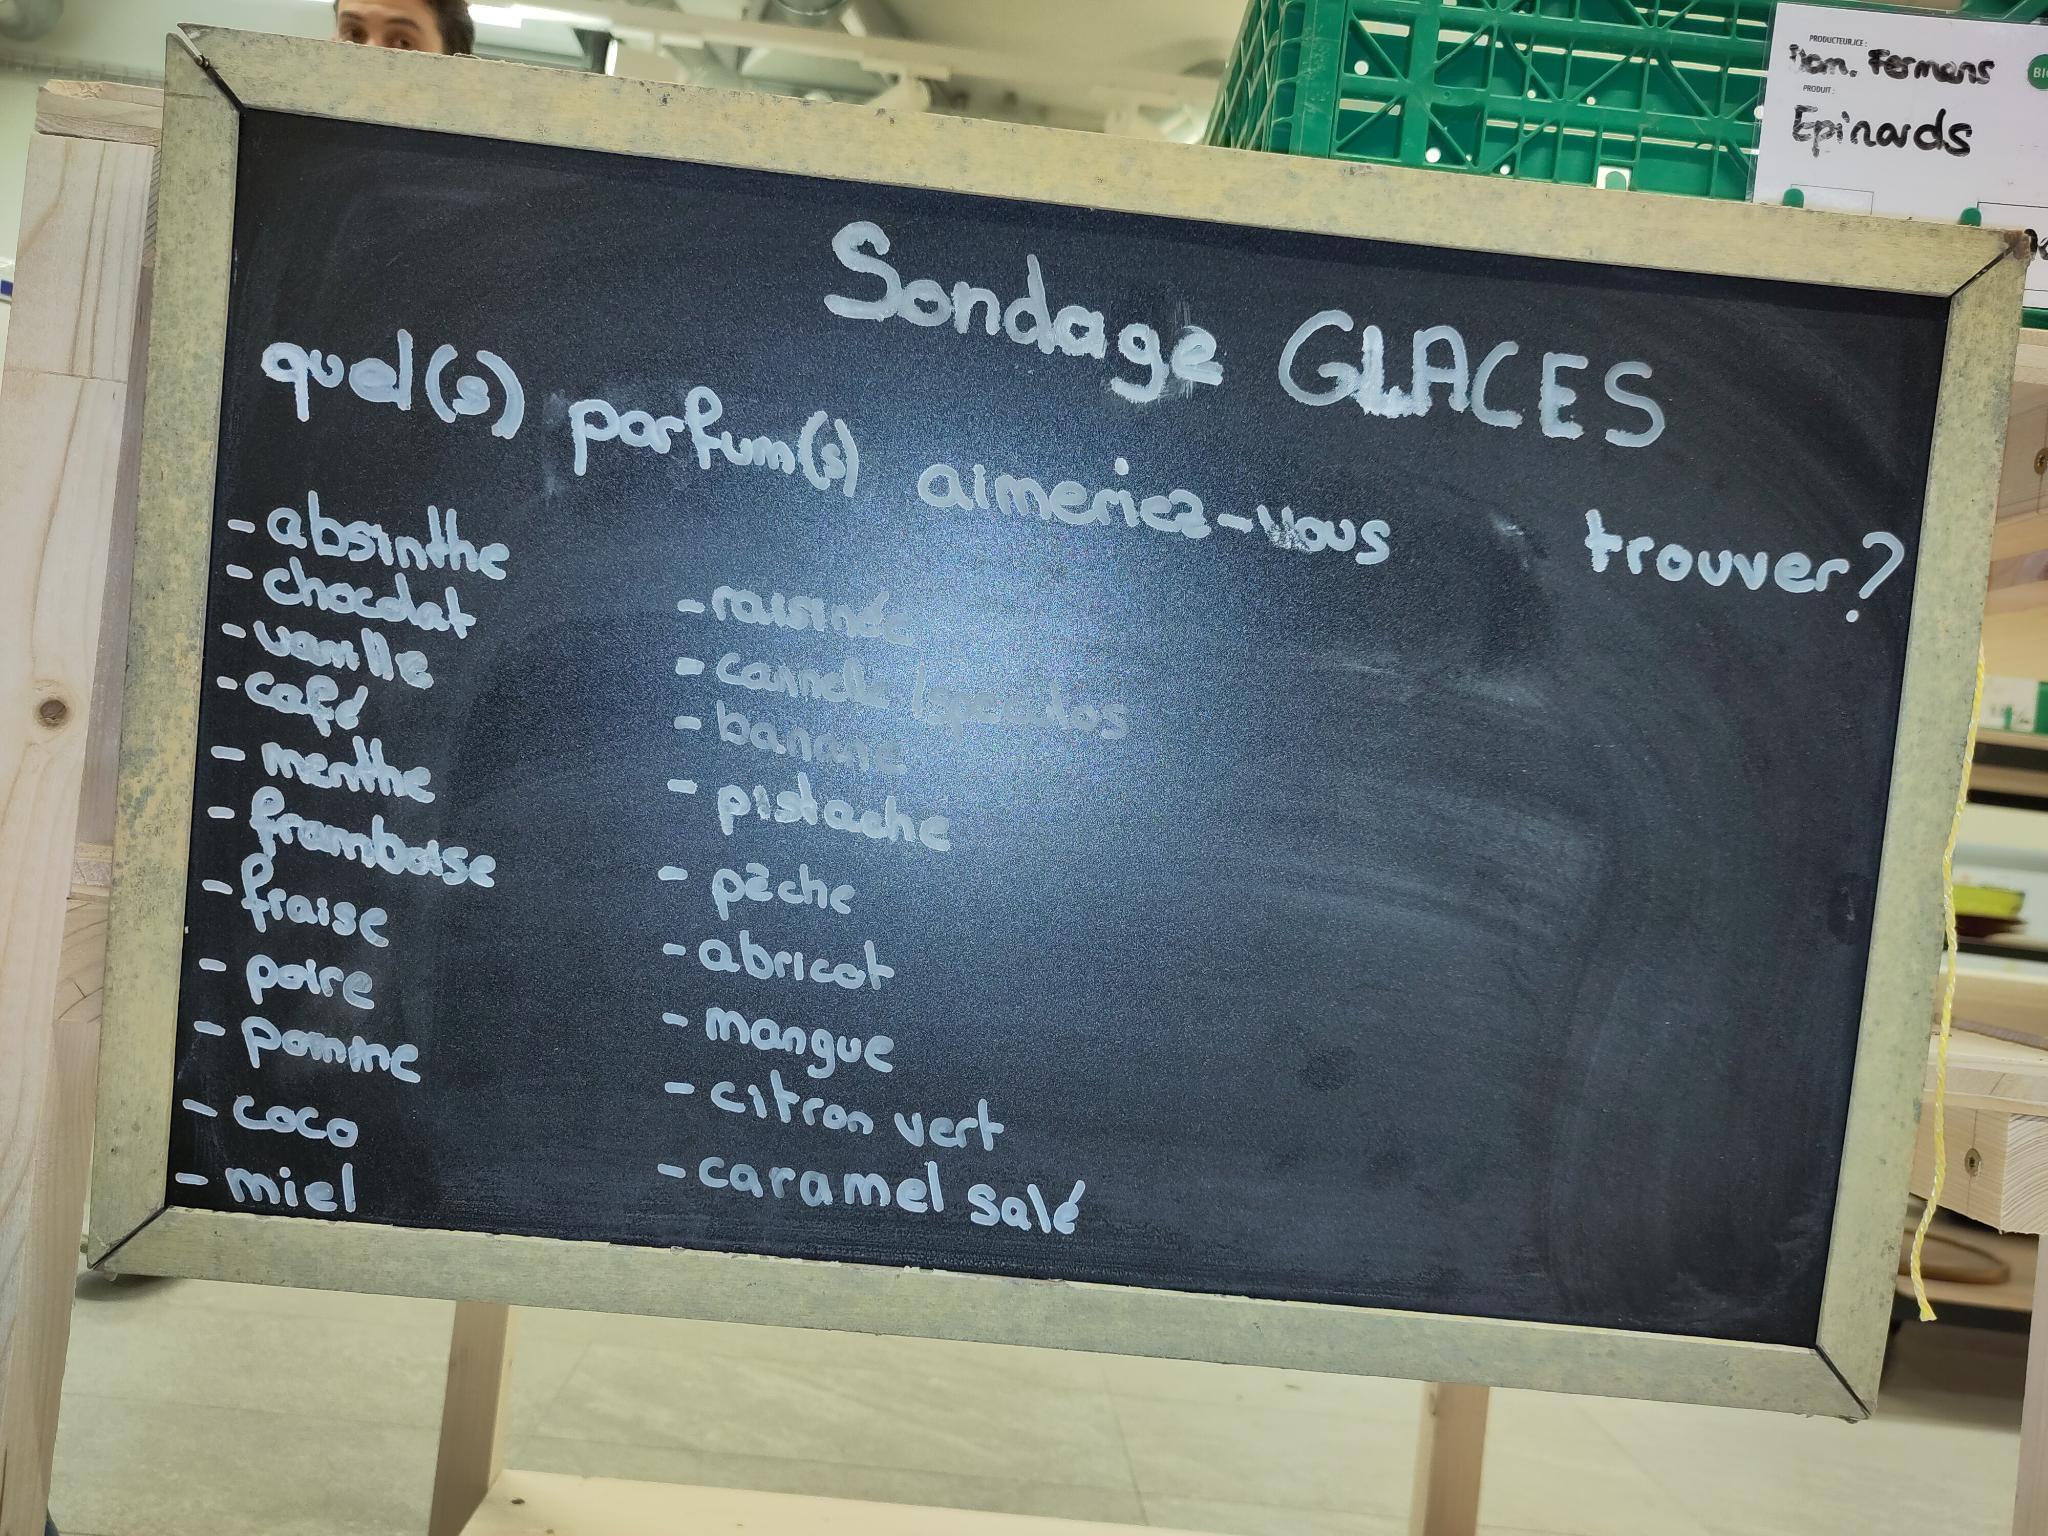 Sondage GLACES
quel(s) parfum(s) aimeriez-vous trouver?
- absinthe
- chocolat
- vanille
- café
- menthe
- framboise
- fraise
- poire
- pomme
- coco
- miel
- raisinée
- cannelle / speculos
- banane
- pistache
- pêche
- abricot
- mangue
- citron vert
- caramel salé
PRODUCTEUR.ICE :
Dom. Fermens
BIO
PRODUIT :
Epinards